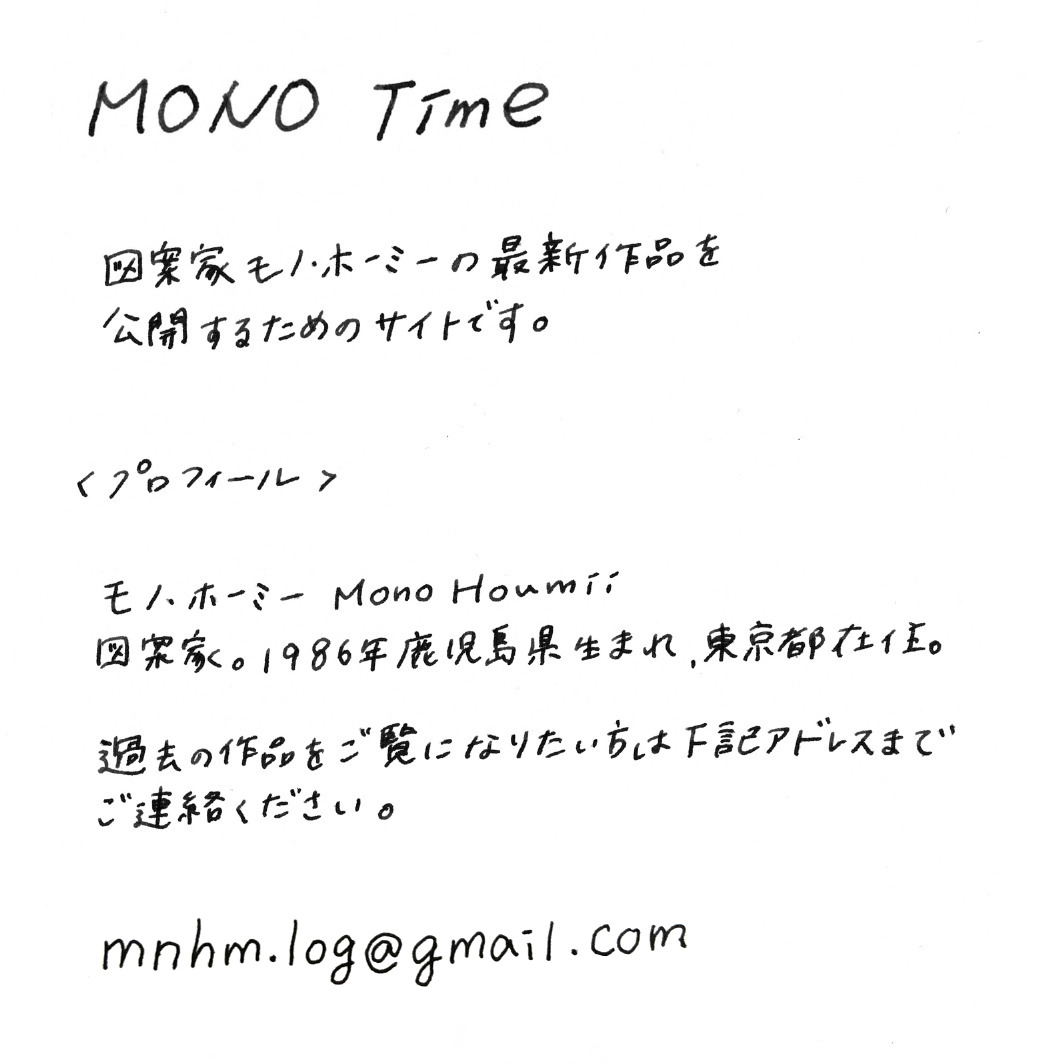 MONO Time
図案家モノ・ホーミーの最新作品を
公開するためのサイトです。
<プロフィール>
モノ・ホーミー Mono Houmii
図案家。1986年鹿児島県生まれ、東京都在住。
過去の作品をご覧になりたい方は下記アドレスまで
ご連絡ください。
mnhm.log@gmail.com